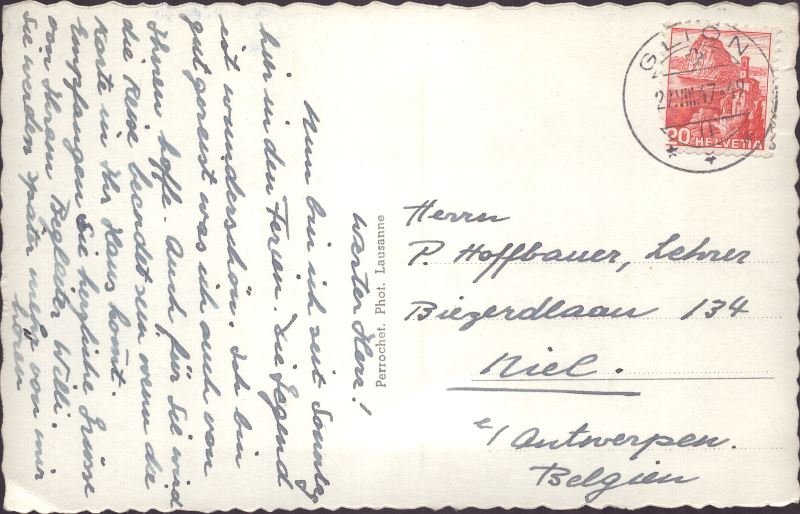 werter Herr!
Nun bin ich seit Sonntag
hier in den Ferien. Die Gegend
ist wunderschön. Ich bin
gut gereist was ich auch von
Ihnen hoffe. Auch für Sie wird
die Reise beendet sein wenn die
Karte in Ihr Haus kommt.
Empfangen Sie herzliche Grüsse
von Ihrem Begleiter Willi.
Sie werden später mehr von mir
hören
Perrochet. Phot. Lausanne
GLION
VIII.47
20 HELVETIA
Herrn
P. Hoffbauer, Lehrer
Biezerdlaan 134
Niel.
e/ Antwerpen.
Belgien